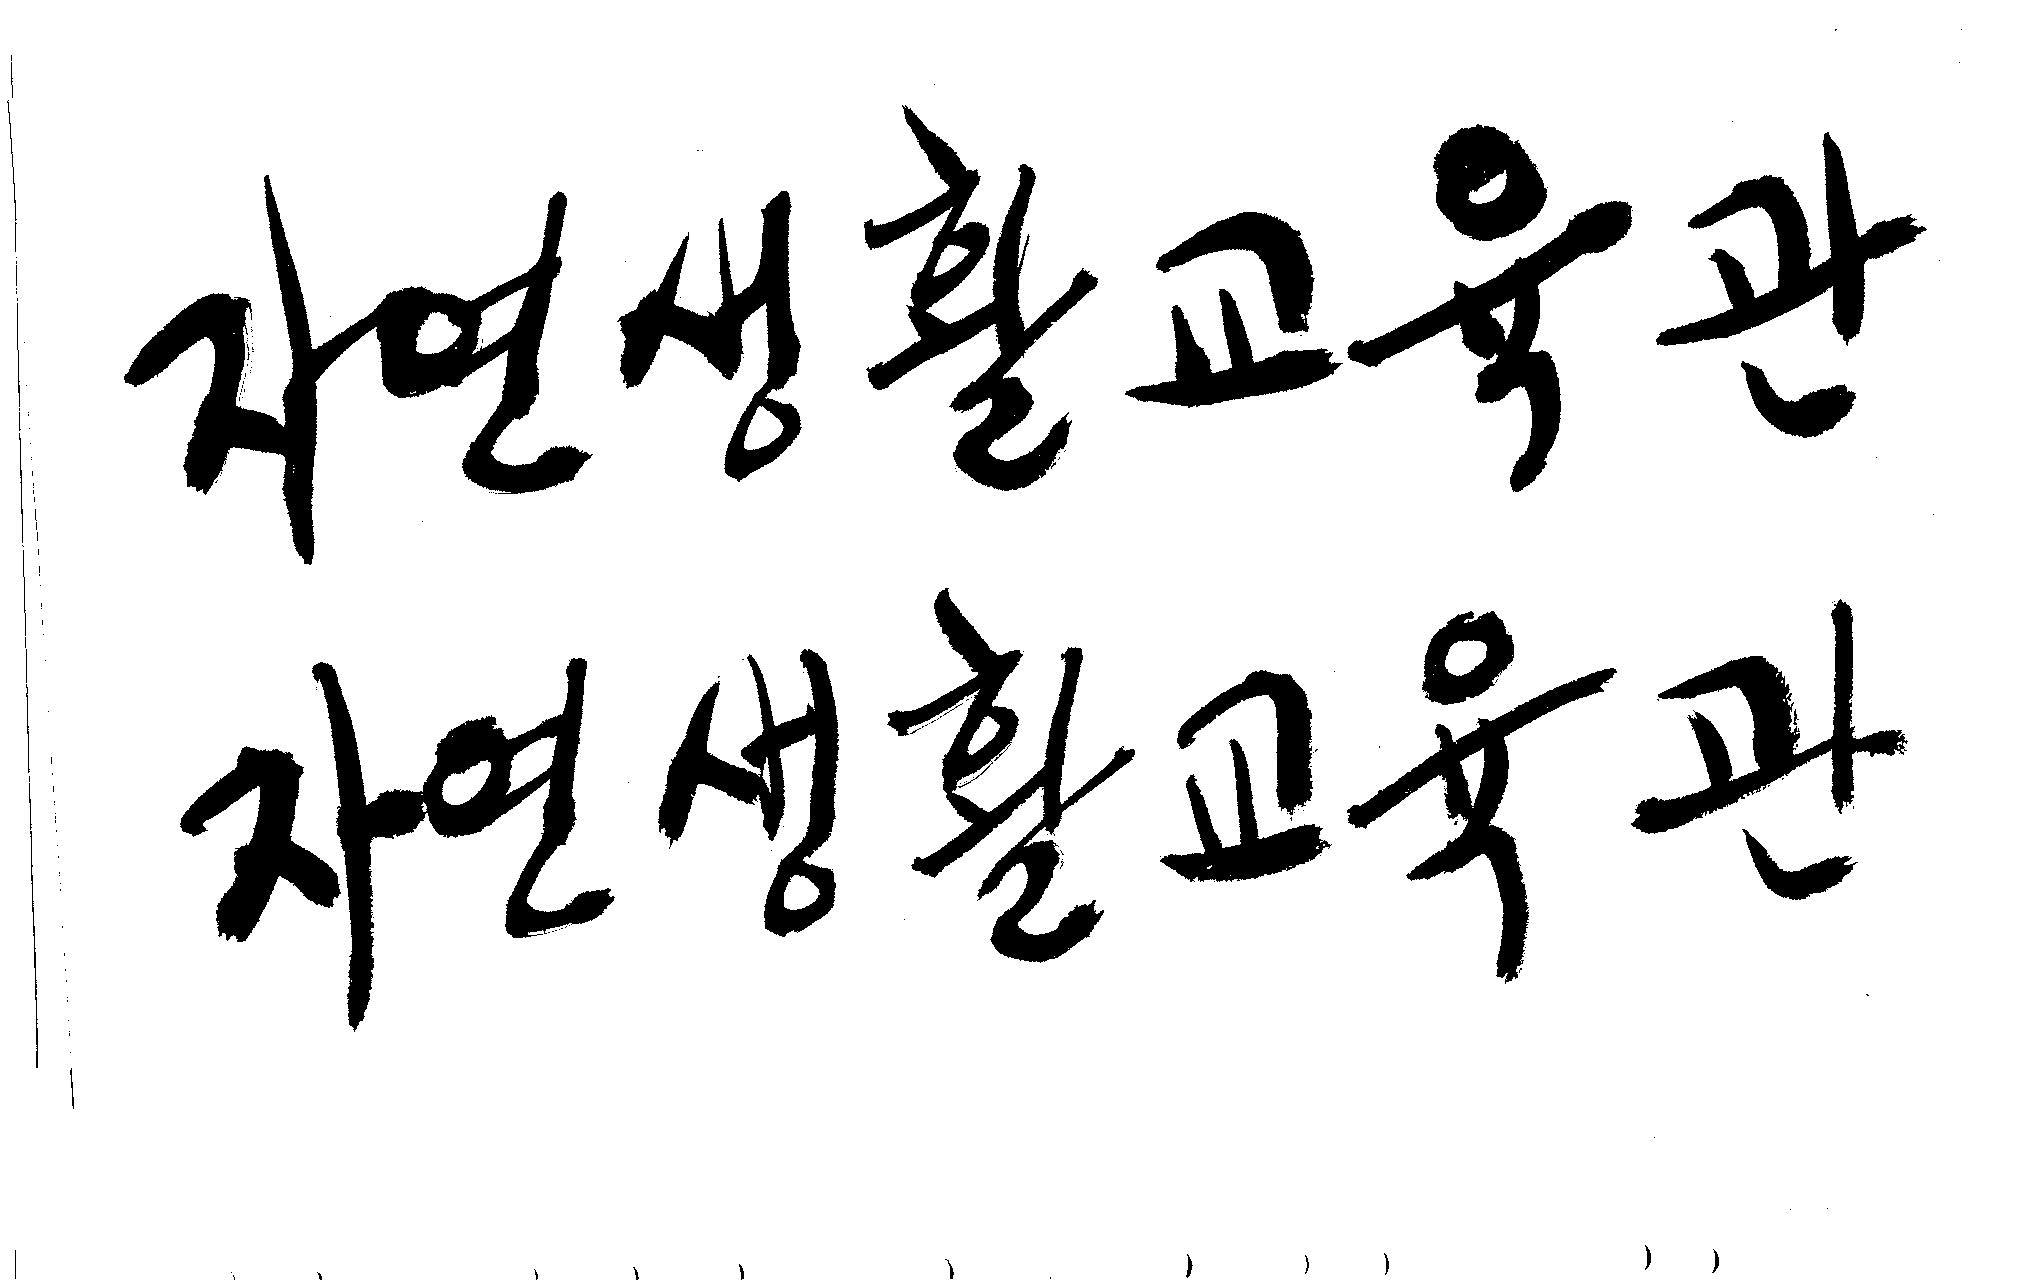 자연생활교육관
자연생활교육관